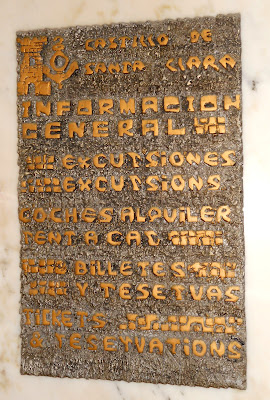 CASTILLO DE
SANTA CLARA
INFORMACION
GENERAL
EXCURSIONES
EXCURSIONS
COCHES ALQUILER
RENT A CAR
BILLETES
Y RESERVAS
TICKETS
& RESERVATIONS